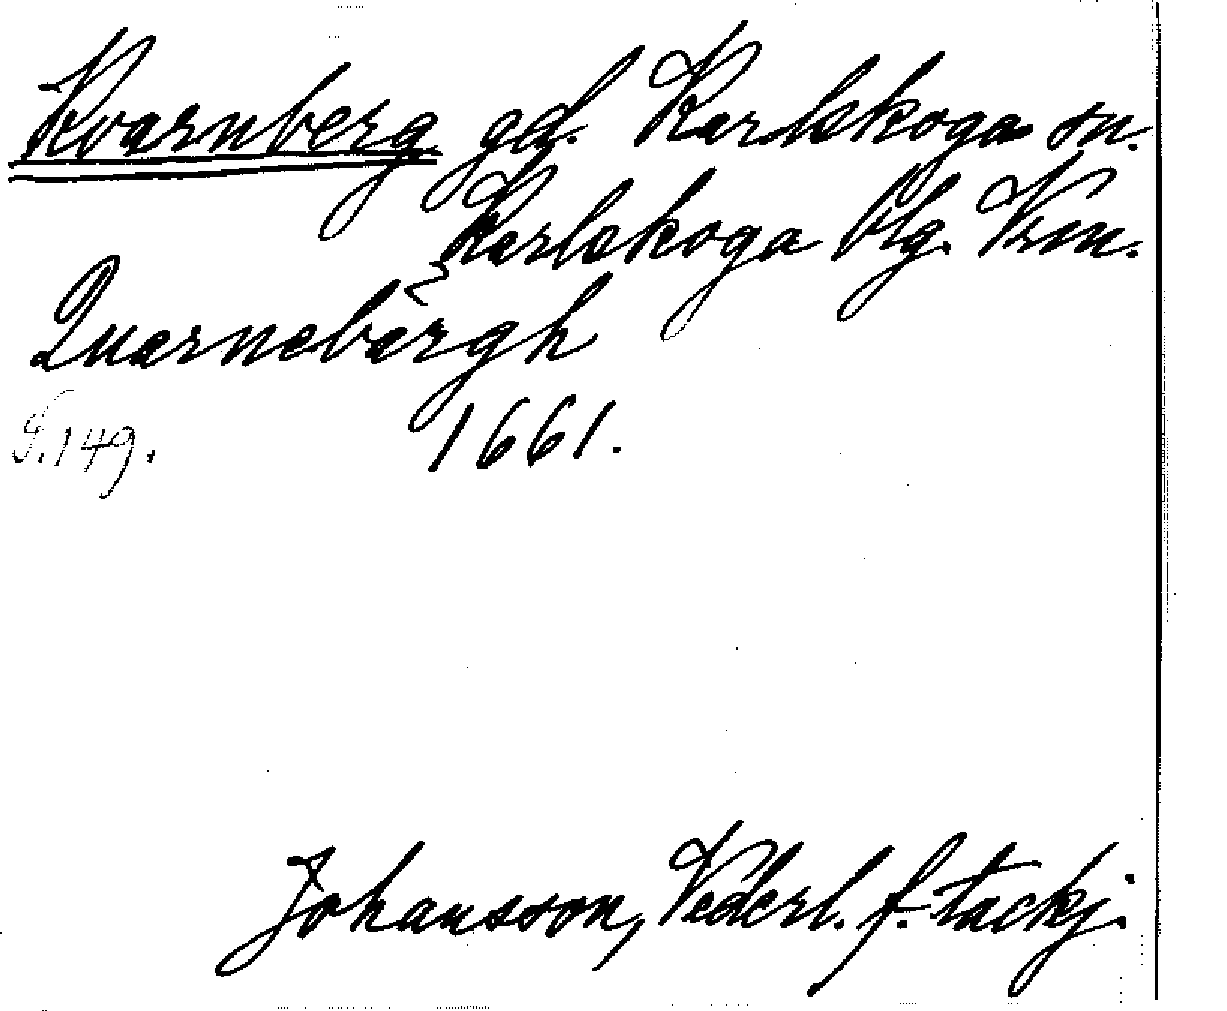 Kvarnberg gd. Karlskoga sn.
Karlskoga blg. Vrm.
Quarnebärgh
S. 149. 1661.
Johansson, Vederl. f. tackj.